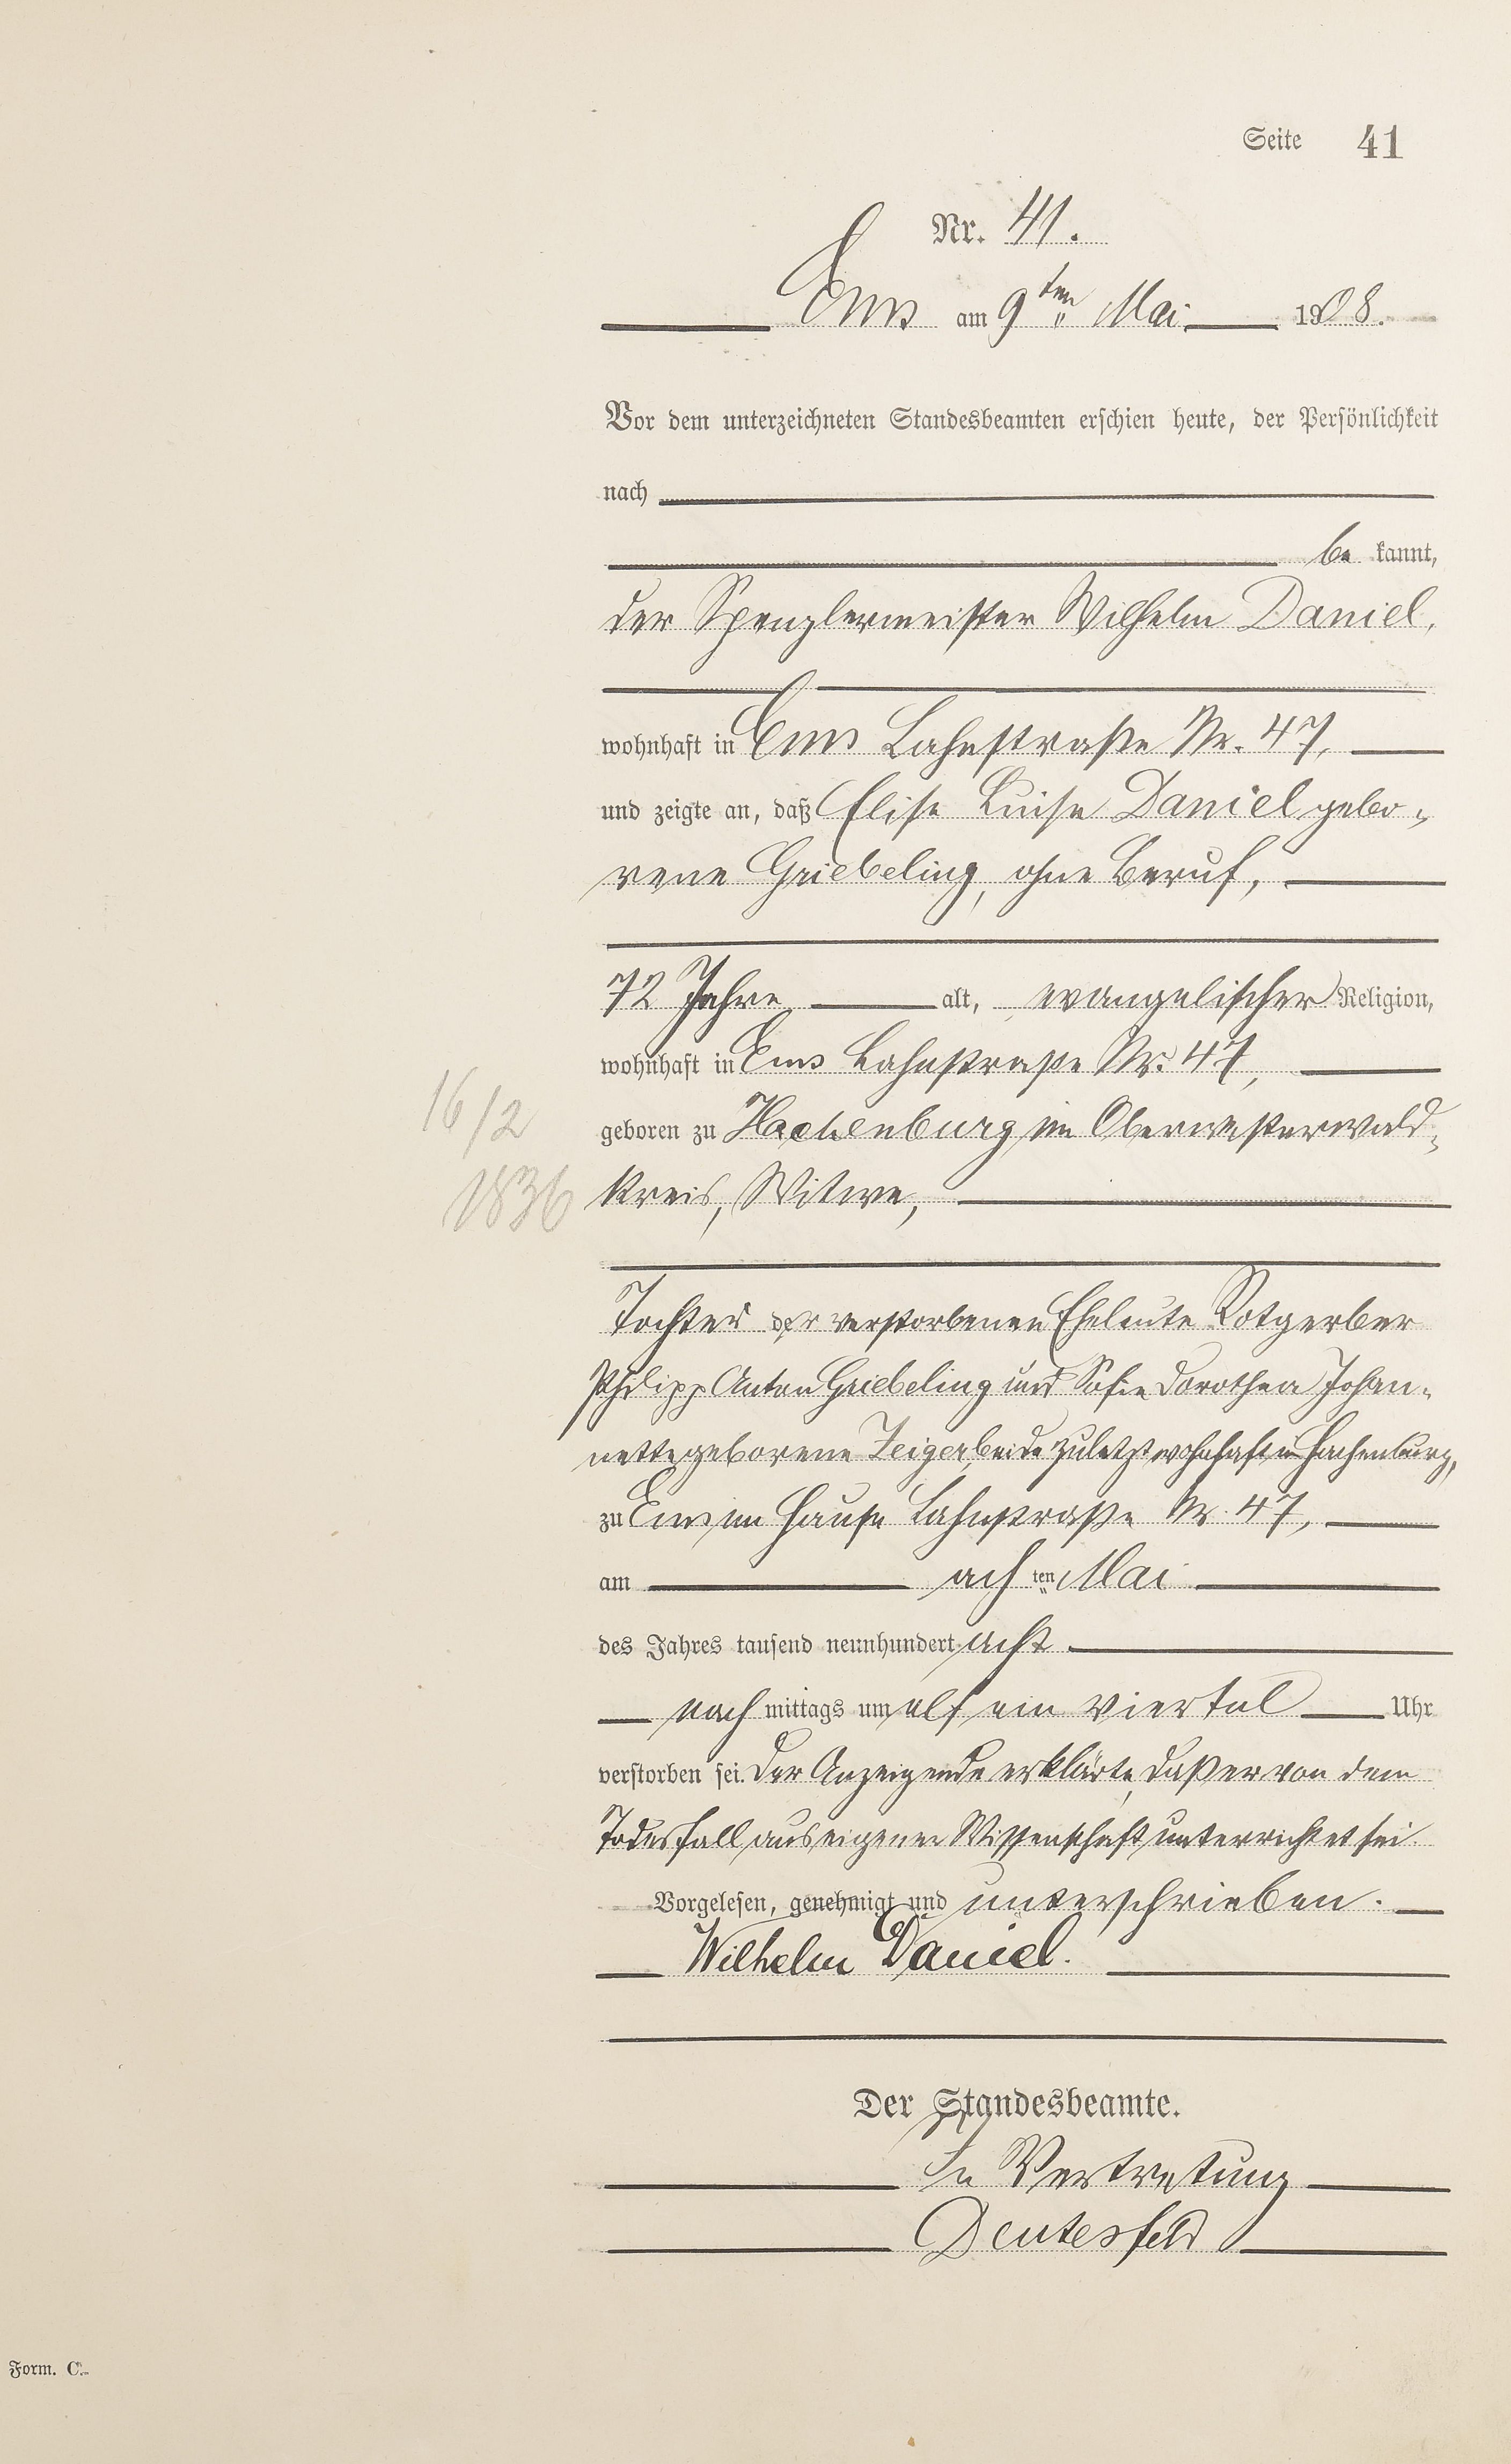 Seite 41
Nr. 41.
Ems am 9ten Mai 1908.
Vor dem unterzeichneten Standesbeamten erschien heute, der Persönlichkeit
nach
be kannt,
der Spenglermeister Wilhelm Daniel,
wohnhaft in Ems Lahnstraße Nr. 47,
und zeigte an, daß Elise Luise Daniel gebo-
rene Griebeling, ohne Beruf,
72 Jahre alt, evangelischer Religion,
wohnhaft in Ems Lahnstraße Nr. 47,
16/2
geboren zu Hachenburg im Oberwesterwald-
1836
kreis, Witwe,
Tochter der verstorbenen Eheleute Rotgerber
Philipp Anton Griebeling und Sofie Dorothea Johan-
nette geborene Zeiger, beide zuletzt wohnhaft in Hachenburg,
zu Ems im Hause Lahnstraße Nr. 47,
am achten Mai
des Jahres tausend neunhundert acht
nach mittags um elf ein viertel Uhr
verstorben sei. Der Anzeigende erklärte, daß er von dem
Todesfall aus eigener Wissenschaft unterrichtet sei.
Vorgelesen, genehmigt und unterschrieben.
Wilhelm Daniel.
Der Standesbeamte.
In Vertretung
Deutesfeld
Form. C.